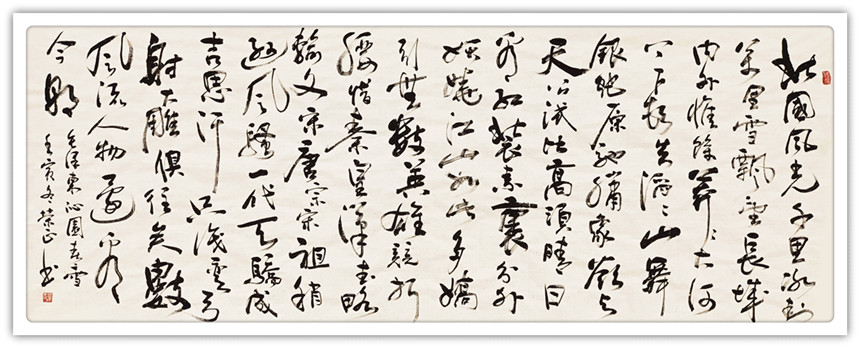 北國風光千里冰封
萬里雪飄望長城
内外惟餘莽〻大河
上下頓失滔〻山舞
銀蛇原馳蠟象欲与
天公試比高須晴日
看紅裝素裹分外
妖嬈江山如此多嬌
引無數英雄競折
腰惜秦皇漢武略
輸文采唐宗宋祖稍
遜風騷一代天驕成
吉思汗只識彎弓
射大雕俱往矣數
風流人物還看
今朝
毛澤東沁園春雪
壬寅冬書